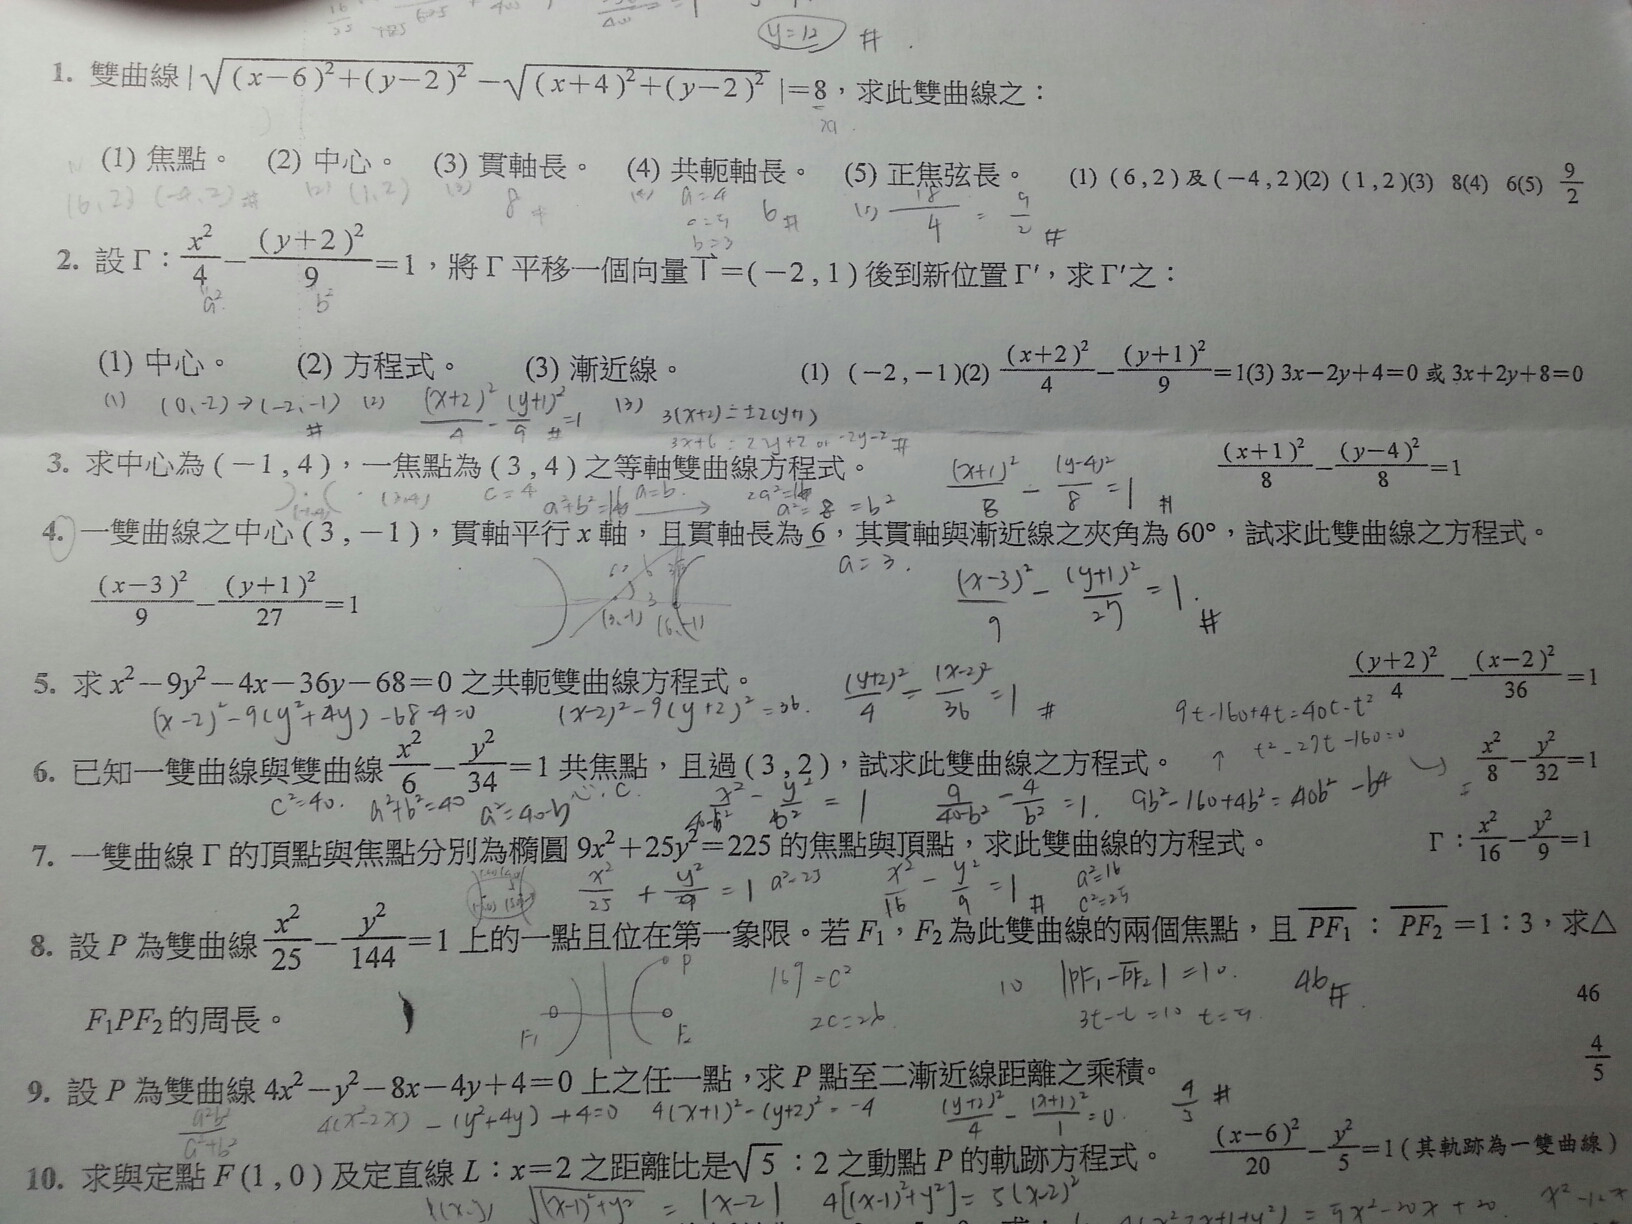 y=12 #
1. 雙曲線|√(x−6)²+(y−2)² −√(x+4)²+(y−2)² |=8，求此雙曲線之：
2a
(1) 焦點。 (2) 中心。 (3) 貫軸長。 (4) 共軛軸長。 (5) 正焦弦長。 (1) (6,2)及(−4,2)(2) (1,2)(3) 8(4) 6(5) 9/2
(6,2) (-4,2) # (2) (1,2) (3) 8 # (4) a=4 6 # (5) 18/4 = 9/2 #
b=3
2. 設Γ：x²/4−(y+2)²/9=1，將Γ平移一個向量T=(−2,1)後到新位置Γ′，求Γ′之：
a² b²
(1) 中心。 (2) 方程式。 (3) 漸近線。 (1) (−2,−1)(2) (x+2)²/4−(y+1)²/9=1(3) 3x−2y+4=0 或 3x+2y+8=0
(1) (0,-2)→(-2,-1) # (2) (x+2)²/4 - (y+1)²/9 =1 # (3) 3(x+2)=±2(y+1)
3x+6=2y+2 or -2y-2 #
3. 求中心為(−1,4)，一焦點為(3,4)之等軸雙曲線方程式。 (x+1)²/8 - (y-4)²/8 =1 # (x+1)²/8−(y−4)²/8=1
(3,4) c=4 a²+b²=16 a=b → 2a²=16 a²=8=b²
4. 一雙曲線之中心(3,−1)，貫軸平行x軸，且貫軸長為6，其貫軸與漸近線之夾角為60°，試求此雙曲線之方程式。
a=3.
(x−3)²/9−(y+1)²/27=1 (3,-1) (6,-1) (x-3)²/9 - (y+1)²/27 =1. #
5. 求x²−9y²−4x−36y−68=0之共軛雙曲線方程式。 (y+2)²/4 - (x-2)²/36 =1 # (y+2)²/4−(x−2)²/36=1
(x-2)²-9(y²+4y)-68-4=0 (x-2)²-9(y+2)²=36. 9t-160+4t=40t-t²
↑ t²-27t-160=0
6. 已知一雙曲線與雙曲線x²/6−y²/34=1共焦點，且過(3,2)，試求此雙曲線之方程式。 x²/8−y²/32=1
c²=40. a²+b²=40 a²=40-b² x²/40-b² - y²/b² =1 9/40-b² - 4/b² =1. 9b²-160+4b²=40b²-b⁴
7. 一雙曲線Γ的頂點與焦點分別為橢圓9x²+25y²=225的焦點與頂點，求此雙曲線的方程式。 Γ：x²/16−y²/9=1
x²/25 + y²/9 =1 a²=25 x²/16 - y²/9 =1 # a²=16
c²=25
8. 設P為雙曲線x²/25−y²/144=1上的一點且位在第一象限。若F₁，F₂為此雙曲線的兩個焦點，且PF₁：PF₂=1：3，求△
P 169=c² 10 |PF₁-PF₂|=10. 46 #
F₁PF₂的周長。 46
F₁ F₂ 2c=26. 3t-t=10 t=5.
9. 設P為雙曲線4x²−y²−8x−4y+4=0上之任一點，求P點至二漸近線距離之乘積。 4/5
a²b²/a²+b² 4(x²-2x)-(y²+4y)+4=0 4(x+1)²-(y+2)²=-4 (y+2)²/4 - (x+1)²/1 =0. #
10. 求與定點F(1,0)及定直線L：x=2之距離比是√5：2之動點P的軌跡方程式。 (x−6)²/20−y²/5=1(其軌跡為一雙曲線)
√(x-1)²+y² = |x-2| 4[(x-1)²+y²]=5(x-2)²